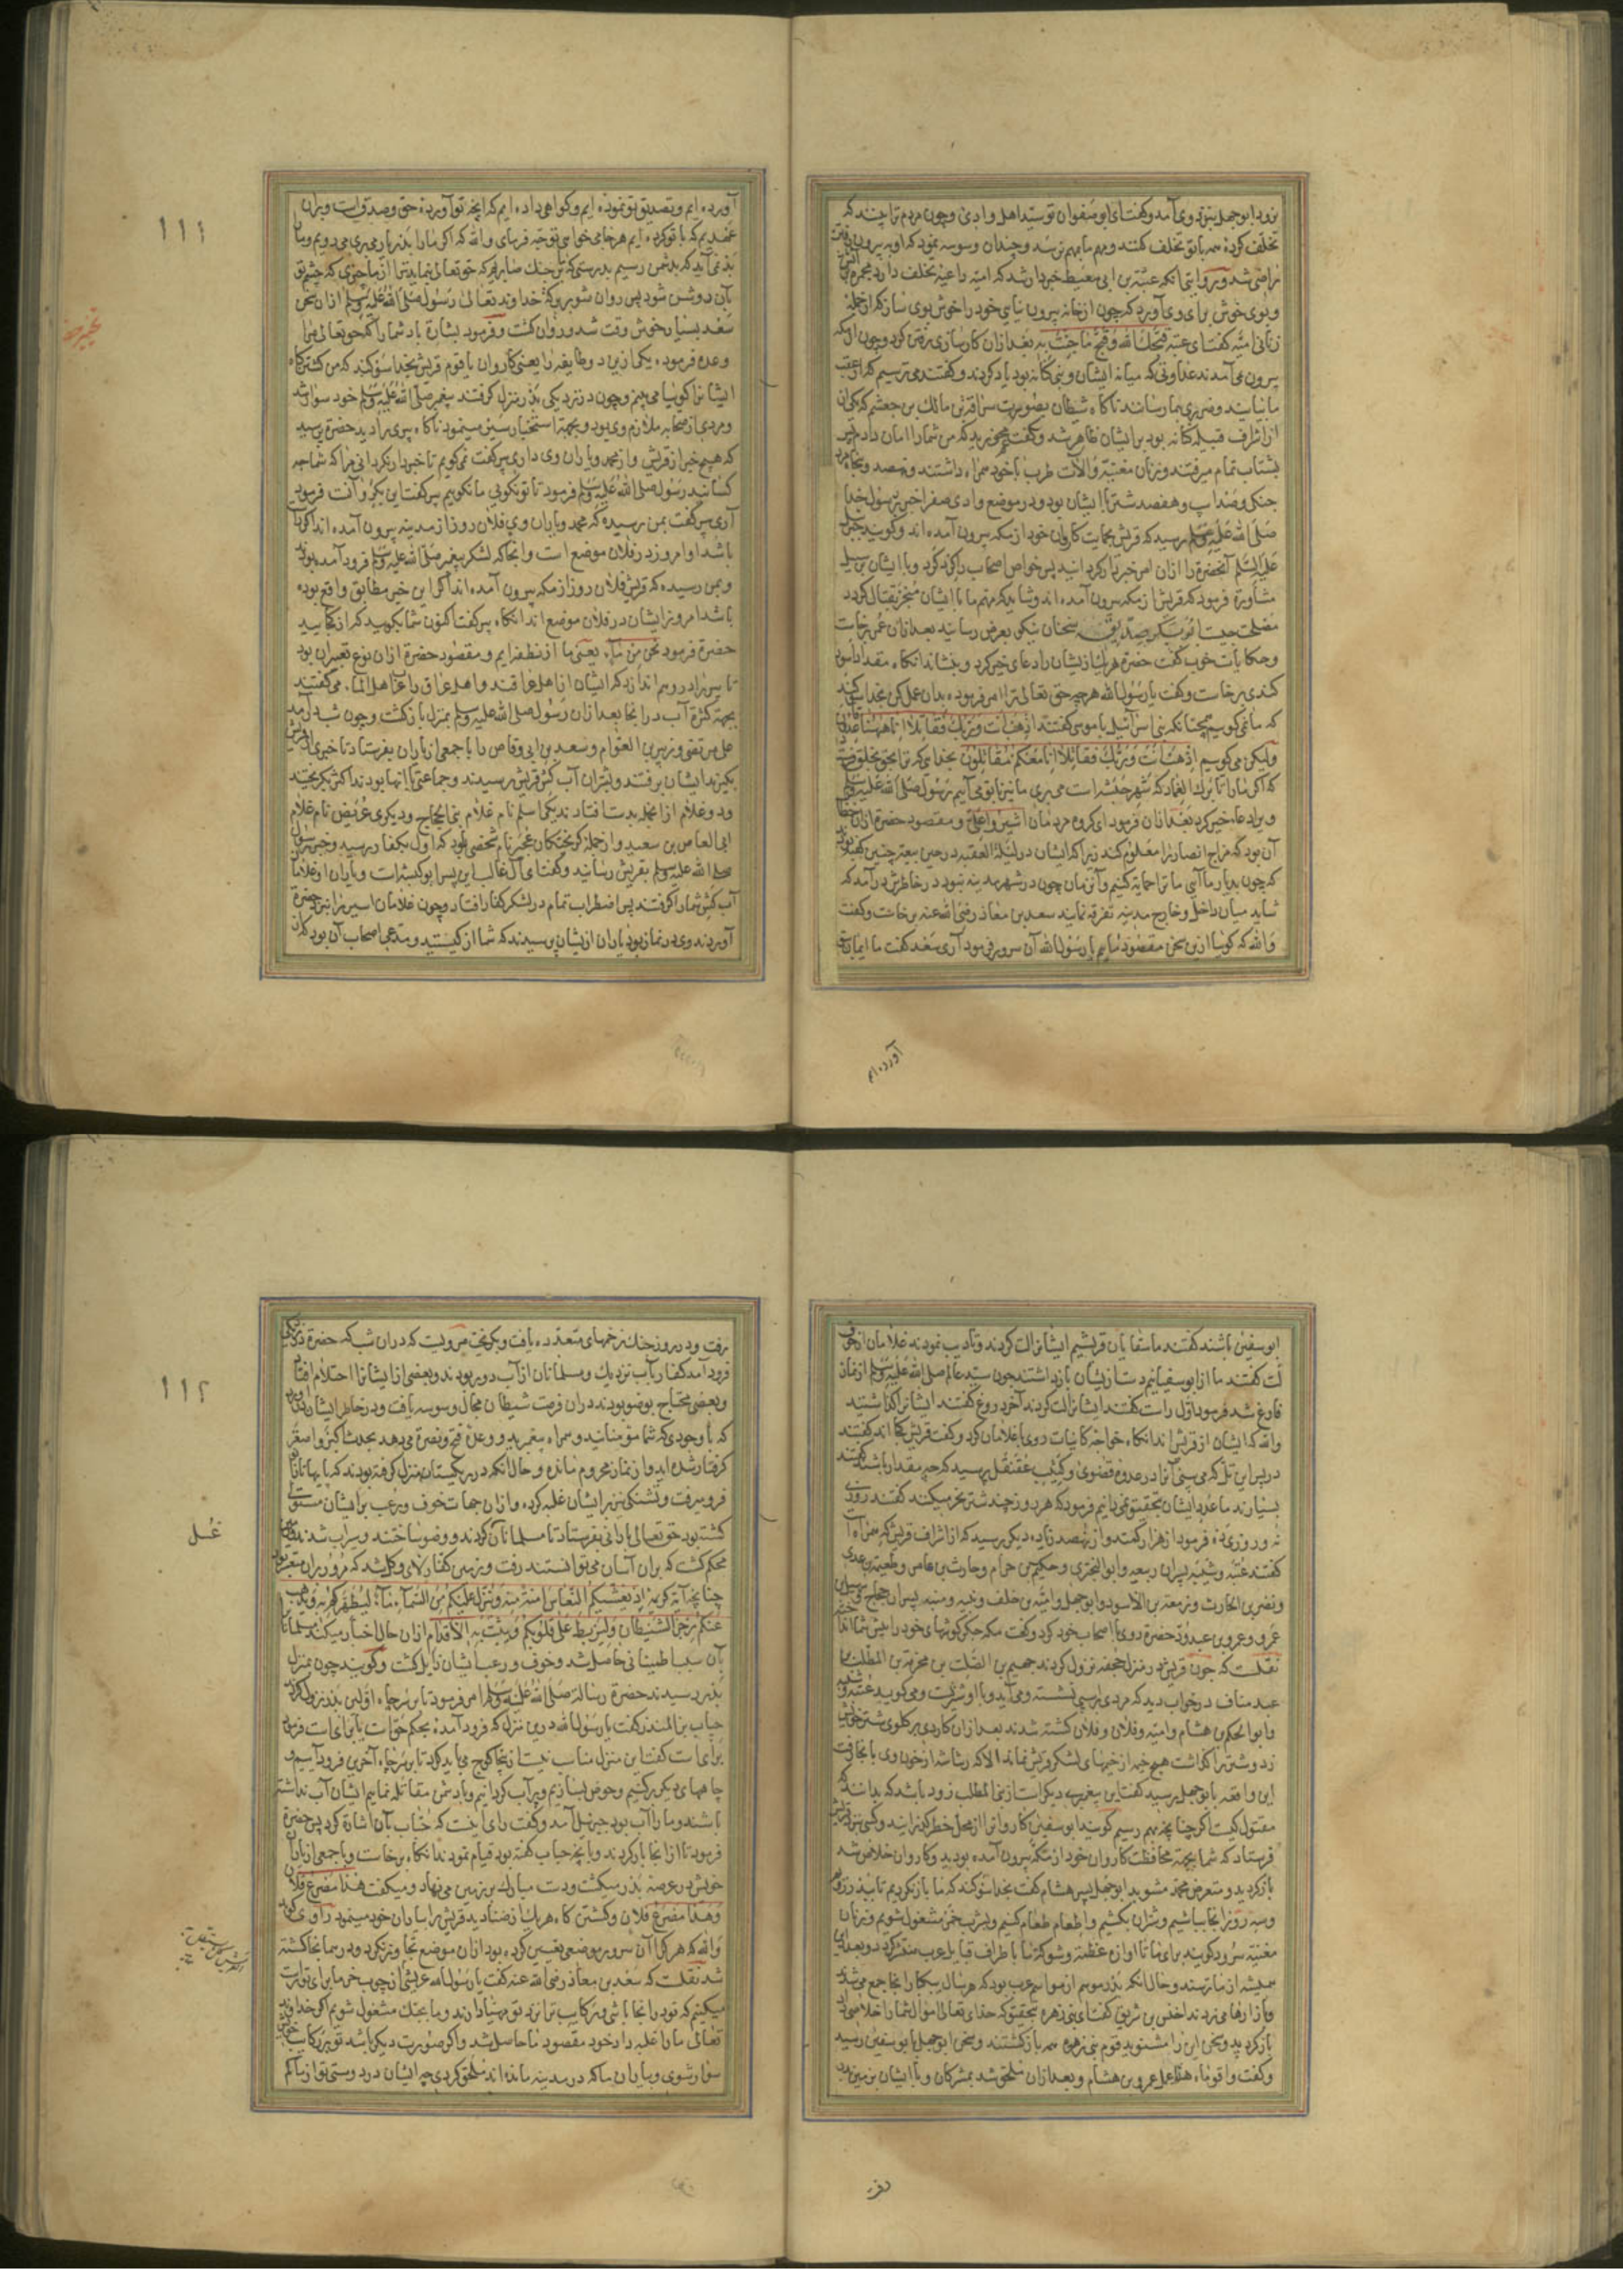 نزد ابوجهل بنزد وی آمد و کفت ای ابو صفوان تو سید اهل وادی و چون مردم ترا بینند که
تخلف کرده همه باتو تخلف کنند و مهم ما بهم نرسد و چندان وسوسه نمود که او به بیرون رفتن
راضی شد و روایتی آنکه عقبة بن ابی معیط خبردار شد که امیه داعیه تخلف دارد
و بوی خوش برای وی آورد که چون از خانه بیرون نیایی خود را خوش بوی ساز که از جمله
زنانی امیه کفت ای عقبه قبحک الله و قبح ما جئت به بعد ازان کارسازی رفتن کرد و چون از مکه
بیرون می آمدند عداوتی که میانه ایشان و بنی کنانه بود یاد کردند و کفتند می ترسیم که از عقب
ما بیایند و ضرری بما رسانند ناکاه شیطان بصورت سراقة بن مالک بن جعشم که یکی از
اشراف قبیله کنانه بود بر ایشان ظاهر شد و کفت که من شما را امان دادم
بشتاب تمام میرفتند و زنان مغنیه و آلات طرب با خود همراه داشتند و نهصد و پنجاه مرد
جنکی و صد اسپ و هفصد شتر با ایشان بود و در موضع وادی صفرا خبر برسول خدا
صلی الله علیه وسلم رسید که قریش بحمایت کاروان خود از مکه بیرون آمده اند و کویند جبریل
علیه السلم آنحضرة را ازان امر خبردار کردانید پس خواص اصحاب را کرد کرد و با ایشان بر سبیل
مشاورة فرمود که قریش از مکه بیرون آمده اند و شاید که مهم ما با ایشان منجر بقتال کردد
مصلحت چیست ابوبکر صدیق سخنان نیکو بعرض رسانید بعد ازان عمر برخاست
و حکایات خوب کفت حضرة هر یک از ایشان را دعای خیر کرد و بنشاند انکاه مقداد اسود
کندی برخاست و کفت یا رسول الله هر چه حق تعالی ترا امر فرموده بدان عمل کن بخدا سوکند
که ما نمی کوییم همچنانکه بنی اسرائیل با موسی کفتند اذهب انت و ربک فقاتلا انا ههنا قاعدون
ولیکن می کوییم اذهب انت و ربک فقاتلا انا معکم مقاتلون بخدای که ترا بحق بخلق فرستاد
که اکر ما را تا برک الغماد که شهر حبشه است می بری ما نیز با تو می آییم رسول صلی الله علیه وسلم
ویرا دعاء خیر کرد بعد ازان فرمود ای کروه مردمان اشیروا علی و مقصود حضرة ازان
آن بود که مزاج انصار را معلوم کند زیرا که ایشان در لیلة العقبه در حین بیعت چنین کفته بودند
که چون بدیار ما آیی ما ترا حمایة کنیم و آن زمان چون در شهر مدینه نبود در خاطرش در آمد که
شاید میان داخل و خارج مدینه تفرقه نمایند سعد بن معاذ رضی الله عنه برخاست و کفت
والله که کویا ازین سخن مقصود ماییم یا رسول الله آن سرور فرمود آری سعد کفت ما ایمان بتو
آورده ام
١١١
آورده ایم و تصدیق تو نموده ایم و کواهی داده ایم که آنچه تو آورده حق و صدق است و بران
عهدیم که با تو کرده ایم هر جا می خواهی توجه فرمای والله که اکر ما را بدریا می بری می رویم و ما
بد نمی آید که بدشمن رسیم بدرستی که در جنک صابریم که حق تعالی بنماید ترا از ما چیزی که چشم تو
بآن روشن شود پس روان شو ببرکة خداوند تعالی رسول صلی الله علیه وسلم ازان سخن
سعد بسیار خوش وقت شد و روان کشت و فرمود بشارة باد شما را که حق تعالی مرا
وعده فرموده یکی ازین دو طایفه را یعنی کاروان یا قوم قریش بخدا سوکند که من کشتنکاه
ایشانرا کویا می بینم و چون در نزدیکی بدر منزل کرفتند پیغمبر صلی الله علیه وسلم خود سوار شد
و مردی از صحابه ملازم وی بود و بجهة استخبار سیر مینمود ناکاه پیری را دید حضرة پرسید
که هیچ خبر از قریش و از محمد و یاران وی داری پیر کفت نمی کویم تا خبردار نکردانی مرا که شما چه
کسانید رسول صلی الله علیه وسلم فرمود تا تو نکویی ما نکوییم پیر کفت این بکرو آنست فرمود
آری پیر کفت بمن رسیده که محمد و یاران وی فلان روز از مدینه بیرون آمده اند اکر راست
باشد او امروز در فلان موضع است و آنجا که لشکر پیغمبر صلی الله علیه وسلم فرود آمده بودند
و بمن رسیده که قریش فلان روز از مکه بیرون آمده اند اکر این خبر مطابق واقع بوده
باشد امروز ایشان در فلان موضع اند انکاه پیر کفت اکنون شما بکویید که از کجایید
حضرة فرمود نحن من ماء یعنی ما از نطفه ایم و مقصود حضرة ازان نوع تعبیر آن بود
تا پیر را در وهم اندازد که ایشان از اهل عراقند و اهل عراق را اهل الماء می کفتند
بجهة کثرة آب در آنجا بعد ازان رسول صلی الله علیه وسلم بمنزل باز کشت و چون شب در آمد
علی مرتضی و زبیر بن العوام و سعد بن ابی وقاص را با جمعی از یاران بفرستاد تا خبری از قریش
بکیرند ایشان برفتند و بشتران آب کش قریش رسیدند و جماعتی با آنها بودند اکثر بکریختند
و دو غلام از آنجمله بدست افتادند یکی اسلم نام غلام بنی الحجاج و دیکری عریض نام غلام
ابی العاص بن سعید و از جمله کریختکان عجیر نام شخصی بود که اول بکفار رسید و خبر رسول
صلی الله علیه وسلم بقریش رسانید و کفت ای آل غالب این پسر ابو کبشه است و یاران او غلامان
آب کش شما را کرفتند پس اضطراب تمام در لشکر کفار افتاد و چون غلامان اسیر را نزد حضرة
آوردند وی در نماز بود یاران ازیشان پرسیدند که شما از کیستید و مدعی اصحاب آن بود که از
ابوسفین باشند کفتند ما سقایان قریشیم ایشانرا لت کردند و تادیب نمودند غلامان از خوف
لت کفتند ما از ابوسفیانیم دست ازیشان بازداشتند چون سید عالم صلی الله علیه وسلم از نماز
فارغ شد فرمود اول راست کفتند ایشانرا لت کردند آخر دروغ کفتند ایشانرا کذاشتید
والله که ایشان از قریش اند انکاه خواجه کاینات روی با غلامان کرد و کفت قریش کجا اند کفتند
در پس این تل که می بینی آنرا در عدوه قصوی و کثیب عقنقل پرسید که چه مقدار باشند کفتند
بسیارند ما عدد ایشان تحقیق نمی دانیم فرمود که هر روز چند شتر نحر میکنند کفتند روزی
نه و روزی ده فرمود از هزار کمتند و از نهصد زیاده دیکر پرسید که از اشراف قریش که همراه اند
کفتند عتبه و شیبه پسران ربیعه و ابوالبختری و حکیم بن حزام و حارث بن عامر و طعیمة بن عدی
و نضر بن الحارث و زمعة بن الاسود و ابوجهل و امیة بن خلف و نبیه و منبه پسران حجاج و سهیل بن
عمرو و عمرو بن عبدود حضرة روی با اصحاب خود کرد و کفت مکه جکر کوشهای خود را پیش شما انداخته
نقلست که چون قریش در منزل جحفه نزول کردند جهیم بن الصلت بن مخرمة بن المطلب بن
عبد مناف در خواب دید که مردی بر اسپی نشسته و می آید و با او شتریست و می کوید عتبه و شیبه
و ابوالحکم بن هشام و امیه و فلان و فلان کشته شدند بعد ازان کاردی بر کلوی شتر خویش
زد و شتر را کذاشت هیچ خیمه از خیمهای لشکر قریش نماند الا که رشاشه از خون وی بانجا رفت
این واقعه با بوجهل رسید کفت این پیغمبری دیکر است از بنی المطلب زود باشد که بدانند که
مقتول کیست اکر چنانچه بهم رسیم کویند ابوسفین کاروانرا از محل خطر کذرانید و کسی نزد قریش
فرستاد که شما بجهة محافظت کاروان خود از مکه بیرون آمده بودید و کاروان خلاص شد
باز کردید و متعرض محمد مشوید ابوجهل پسر هشام کفت بخدا سوکند که ما باز نکردیم تا ببدر رویم
و سه روز آنجا باشیم و شتران بکشیم و اطعام طعام کنیم و بشرب خمر مشغول شویم و زنان
مغنیه سرود کویند برای ما تا آوازه عظمت و شوکت ما باطراف قبایل عرب منتشر کردد و بعد ازین
همیشه از ما ترسند و حال آنکه بدر موسم از مواسم عرب بود که هر سال یکبار آنجا جمع می شدند
و بازارها می زدند اخنس بن شریق کفت ای بنی زهره بتحقیق که خدای تعالی اموال شما را خلاصی داد
باز کردید و سخن این را مشنوید قوم بنی زهره همه باز کشتند و سخن ابوجهل با بوسفین رسید
و کفت واقوماه هذا عمل عمرو بن هشام و بعد ازان ملحق شد بمشرکان و با ایشان بزمین بدر
رفت
١١٢
برفت و در روز جنک زخمهای متعدده یافت و بکریخت مرویست که دران شب که حضرة نزدیک
فرود آمد کفار بآب نزدیک و مسلمانان از آب دور بودند و بعضی از ایشانرا احتلام افتاد
و بعضی محتاج بوضو بودند دران فرصت شیطان مجال وسوسه یافت و در خاطر ایشان
که با وجودی که شما مؤمنانید و همراه پیغمبرید و وعده فتح و نصرة می دهد بحدث اکبر و اصغر
کرفتار شده اید و از نماز محروم مانده و حال آنکه در ریکستان منزل کرفته بودند که پایها تا زانو
فرو میرفت و تشنکی نیز بر ایشان غلبه کرده و ازان جهات خوف و رعب بر ایشان مستولی
کشته بود حق تعالی بارانی بفرستاد تا مسلمانان غسل کردند و وضو ساختند و سیراب شدند و زمین
محکم کشت که بران آسان می توانستند رفت و زمین کفار لای و کل شد که مرور بران متعذر بود
چنانچه آیه کریمه اذ یغشیکم النعاس امنة منه و ینزل علیکم من السماء ماء لیطهرکم به و یذهب
عنکم رجز الشیطان و لیربط علی قلوبکم و یثبت به الاقدام ازان حال اخبار میکند مسلمانان را
بآن سبب اطمینانی حاصل شد و خوف و رعب ایشان زایل کشت و کویند چون بمنزل
بدر رسیدند حضرة رسالة صلی الله علیه وسلم امر فرمود تا بر سر چاه اولین بدر نزول کردند
حباب بن المنذر کفت یا رسول الله درین منزل که فرود آمده بحکم حق است یا برای است فرمود
برای است کفت این منزل مناسب نیست ازینجا کوچ می باید کرد تا بر سر چاه آخرین فرود آییم و
چاههای دیکر پر کنیم و حوض بسازیم و پر آب کردانیم و با دشمن مقاتله نماییم ایشان آب نداشته
باشند و ما را آب بود جبریل آمد و کفت رای اینست که حباب بآن اشارة کرد پس حضرة
فرمود تا از آنجا بار کردند و بآنچه حباب کفته بود قیام نمودند انکاه برخاست و با جمعی از یاران
خویش در عرصه بدر میکشت و دست مبارک بر زمین می نهاد و میکفت هذا مصرع فلان
و هذا مصرع فلان و کشتن کاه هر یک از صنادید قریش را بیاران خود مینمود راوی کوید
والله که هر کرا آن سرور موضعی تعیین کرده بود ازان موضع تجاوز نکرد و در همانجا کشته
شد نقلست که سعد بن معاذ رضی الله عنه کفت یا رسول الله عریشی از چوب خرما برای تو راست
میکنیم که تو در آنجا باشی و رکایب ترا نزد تو مهیا دارند و ما بجنک مشغول شویم اکر خداوند
تعالی ما را غلبه داد خود مقصود ما حاصل شد و اکر صورت دیکر باشد تو بر رکایب خویش
سوار شوی و بیاران ما که در مدینه مانده اند ملحق کردی چه ایشان در دوستی تو از ما کم
غسل